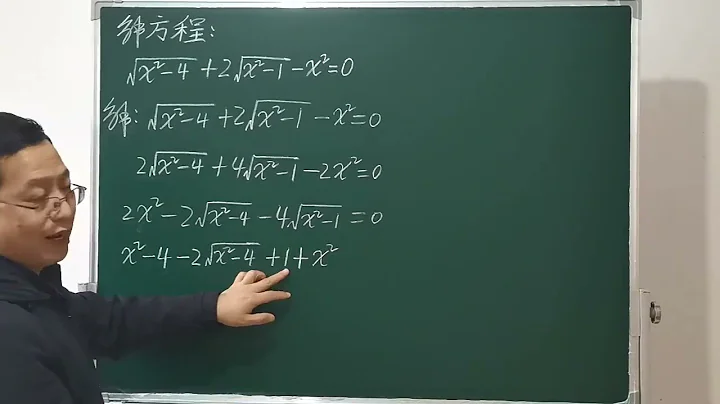 解方程:
√(x²-4) + 2√(x²-1) - x² = 0
解: √(x²-4) + 2√(x²-1) - x² = 0
2√(x²-4) + 4√(x²-1) - 2x² = 0
2x² - 2√(x²-4) - 4√(x²-1) = 0
x² - 4 - 2√(x²-4) + 1 + x²